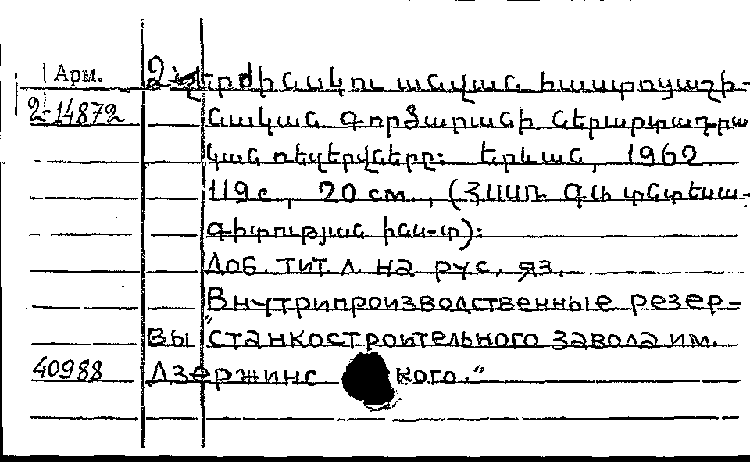 Арм.
2-14872
Ձերժինսկու անվան հաստոցաշի-
նական գործարանի ներարտադրա
կան ռեզերվները: Երևան, 1960
119 с., 20 см., (ՀՍՍՌ ԳԱ տնտեսա-
գիտության ինս-տ):
Доб. тит. л. на рус. яз.
Внутрипроизводственные резер-
вы "станкостроительного завода им.
40988 Дзержинс кого."